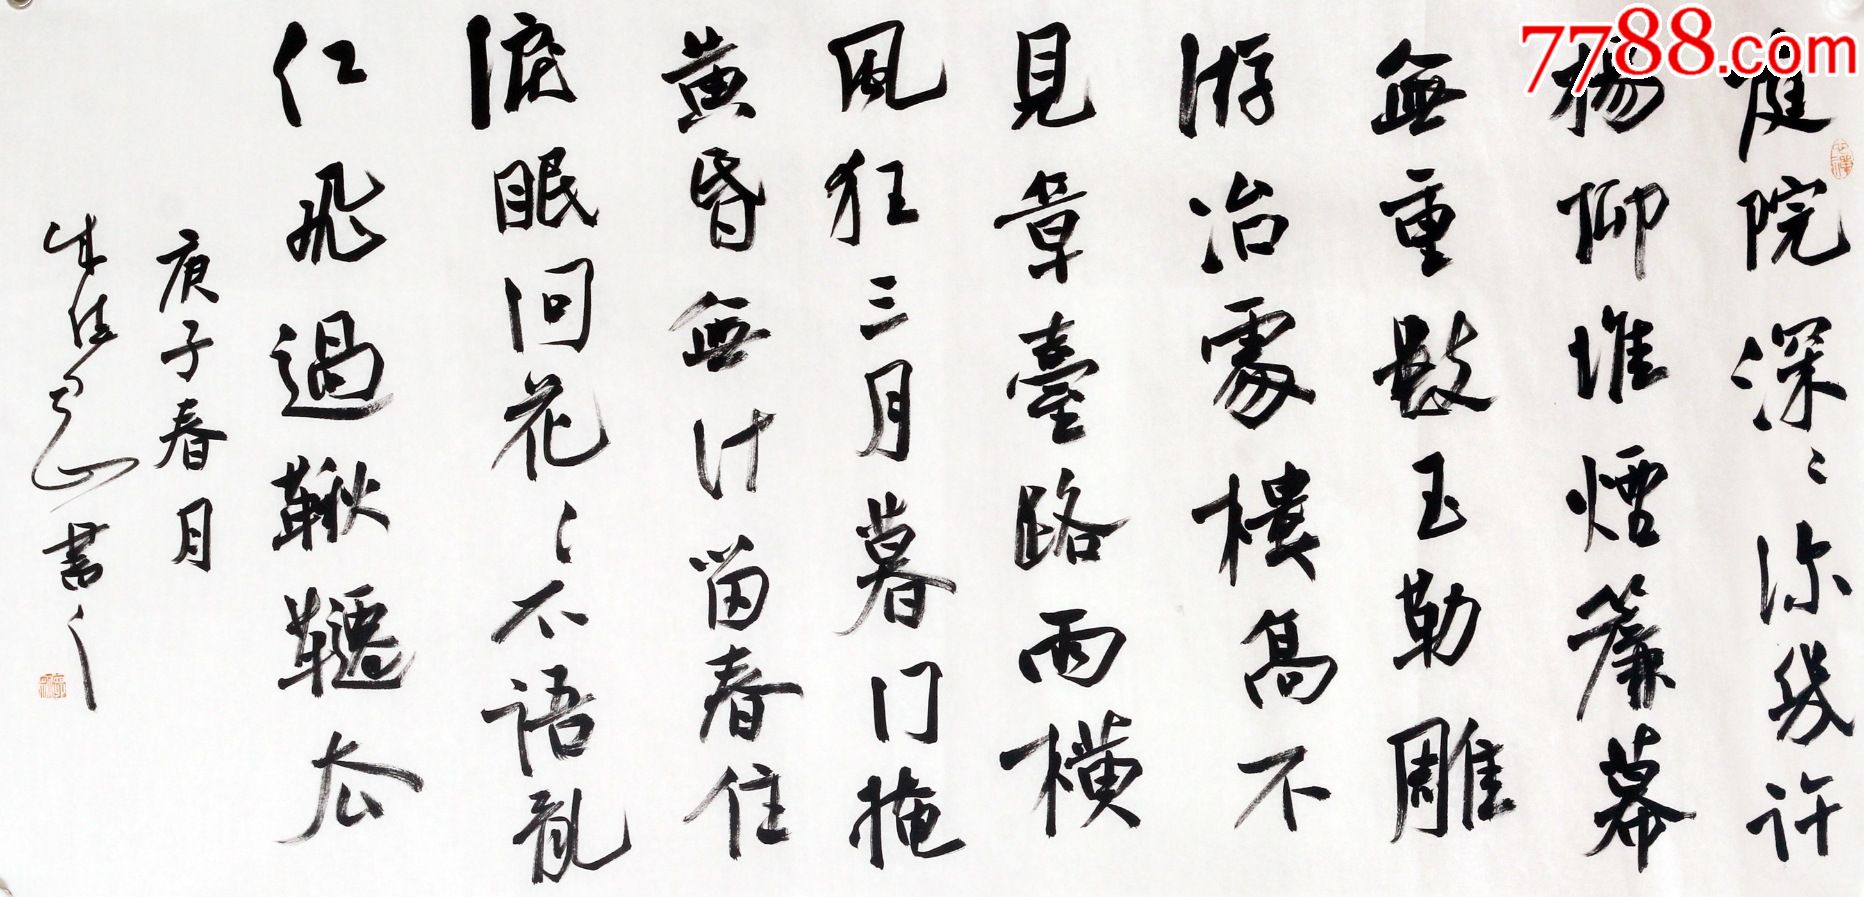 庭院深〻深幾許
楊柳堆煙簾幕
無重數玉勒雕
游冶處樓高不
見章臺路雨橫
風狂三月暮門掩
黄昏無計留春住
淚眼问花〻不語亂
红飛過鞦韆去
庚子春月
書之
7788.com